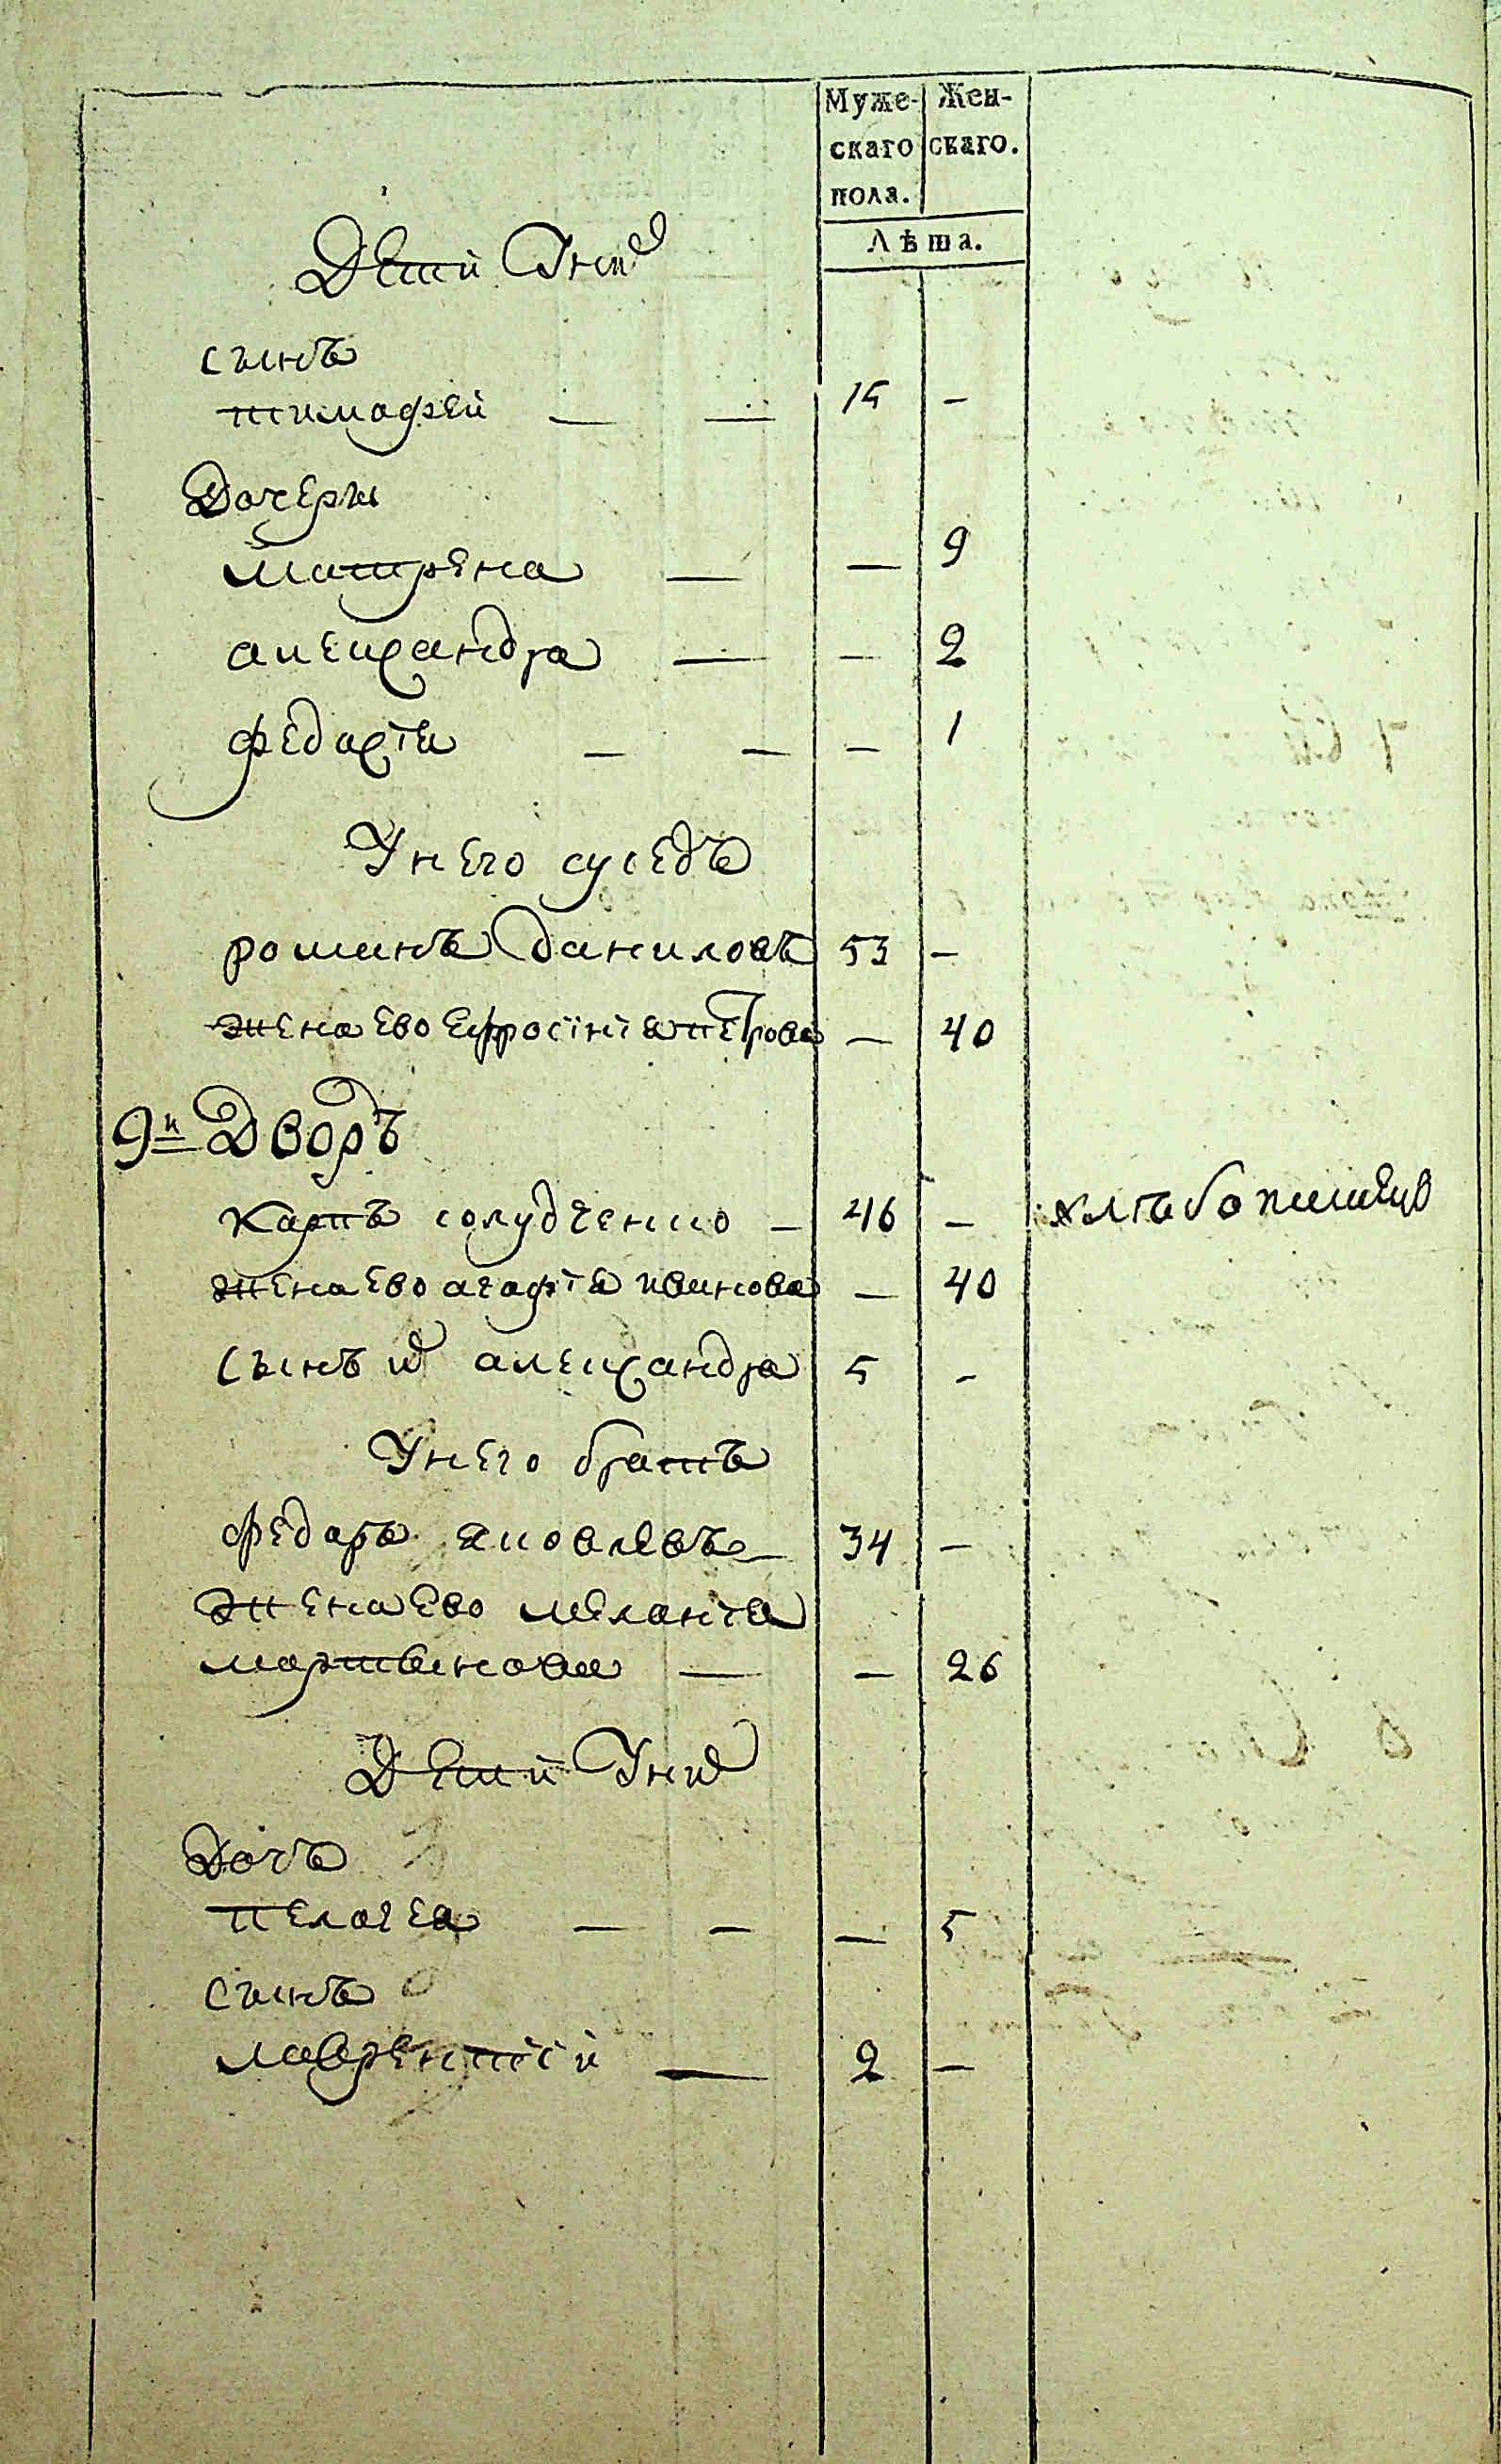 Муже- Жен-
скаго скаго.
пола.
Лѣта.
Дети Уних
сынъ
тимофей — — 15 —
Дочеры
матрена — — 9
александра — — 2
федосїя — — — 1
Унего суседъ
романъ даниловъ 53 —
жена ево ефросінїя петрова — 40
9й Дворъ
Карпъ голудченко — 46 — хлѣбопашецъ
жена ево агафїя иванова — 40
сынъ их александра 5 —
Унего братъ
федаръ яковлевъ — 34 —
жена ево меланїя
мартынова — — 26
Дети Уних
Дочъ
пелагея — — — 5
сынъ
лаврентїй — 2 —